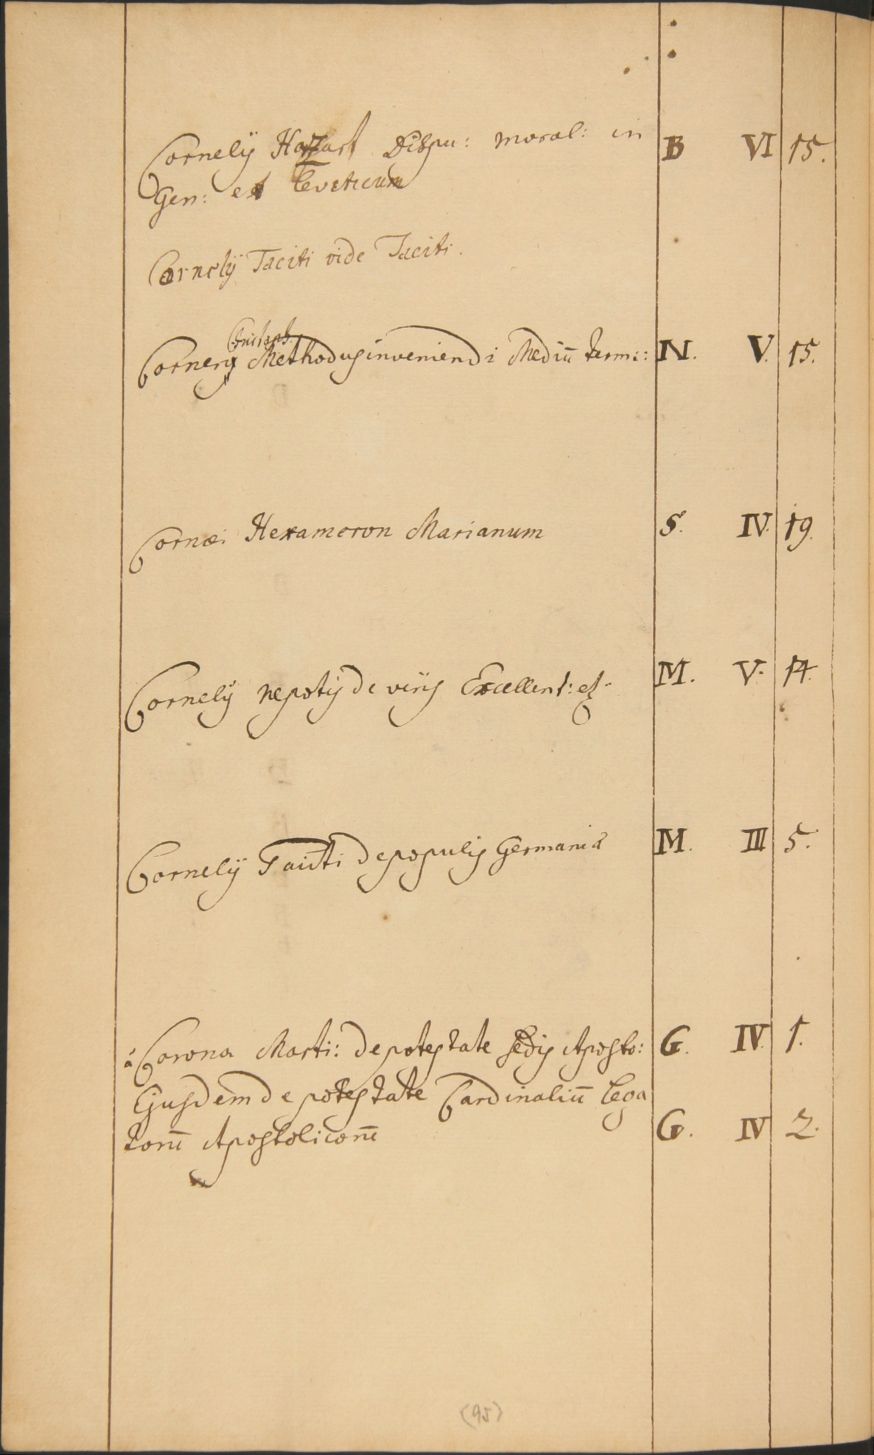 Cornelÿ Hazart Dispu: moral: in B VI 15.
Gen: et Leviticum
Cornelÿ Taciti vide Taciti.
Cornerÿ Methodus inveniendi Mediū termi: N. V. 15.
Cornæi Hexameron Marianum S. IV. 19.
Cornelÿ nepotis de viris Excellent: et M. V. 14.
Cornelÿ Taciti de populis Germaniæ M. III 5.
á Corona Marti: De potestate sedis Aposto: G. IV. 1.
Ejusdem de potestate Cardinaliū Lega
torū Apostolicorū G. IV 2.
(95)